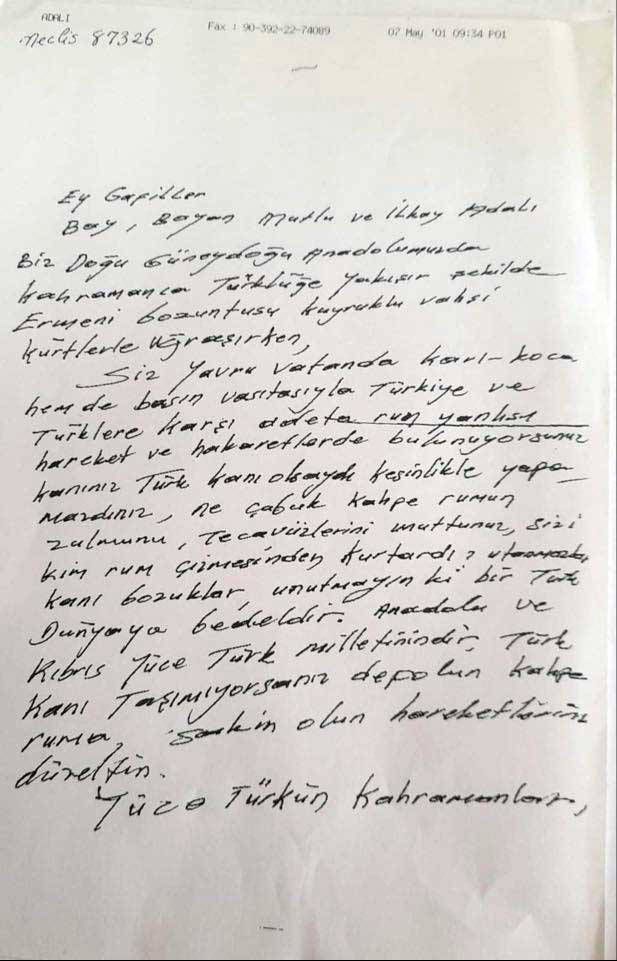 ADALI
Meclis 87326
Fax : 90-392-22-74089 07 May '01 09:34 P01
Ey Gafiller
Bay, Bayan Mutlu ve İlkay Adalı
Biz Doğu Güneydoğu Anadolumuzda
kahramanca Türklüğe yakışır şekilde
Ermeni bozuntusu kuyruklu vahşi
kürtlerle uğraşırken,
Siz yavru vatanda karı-koca
hemde basın vasıtasıyla Türkiye ve
Türklere karşı adeta rum yanlısı
hareket ve hakaretlerde bulunuyorsunuz
kanınız Türk kanı olsaydı kesinlikle yapa-
mazdınız, ne çabuk kahpe rumun
zulmunu, Tecavüzlerini unuttunuz, sizi
kim rum çizmesinden kurtardı? utanmazlar
kanı bozuklar, unutmayın ki bir Türk
Dünyaya bedeldir. Anadolu ve
Kıbrıs Yüce Türk milletinindir, Türk
kanı Taşımıyorsanız defolun kahpe
ruma, Sakin olun hareketlerinizi
düzeltin.
Yüce Türkün Kahramanları,